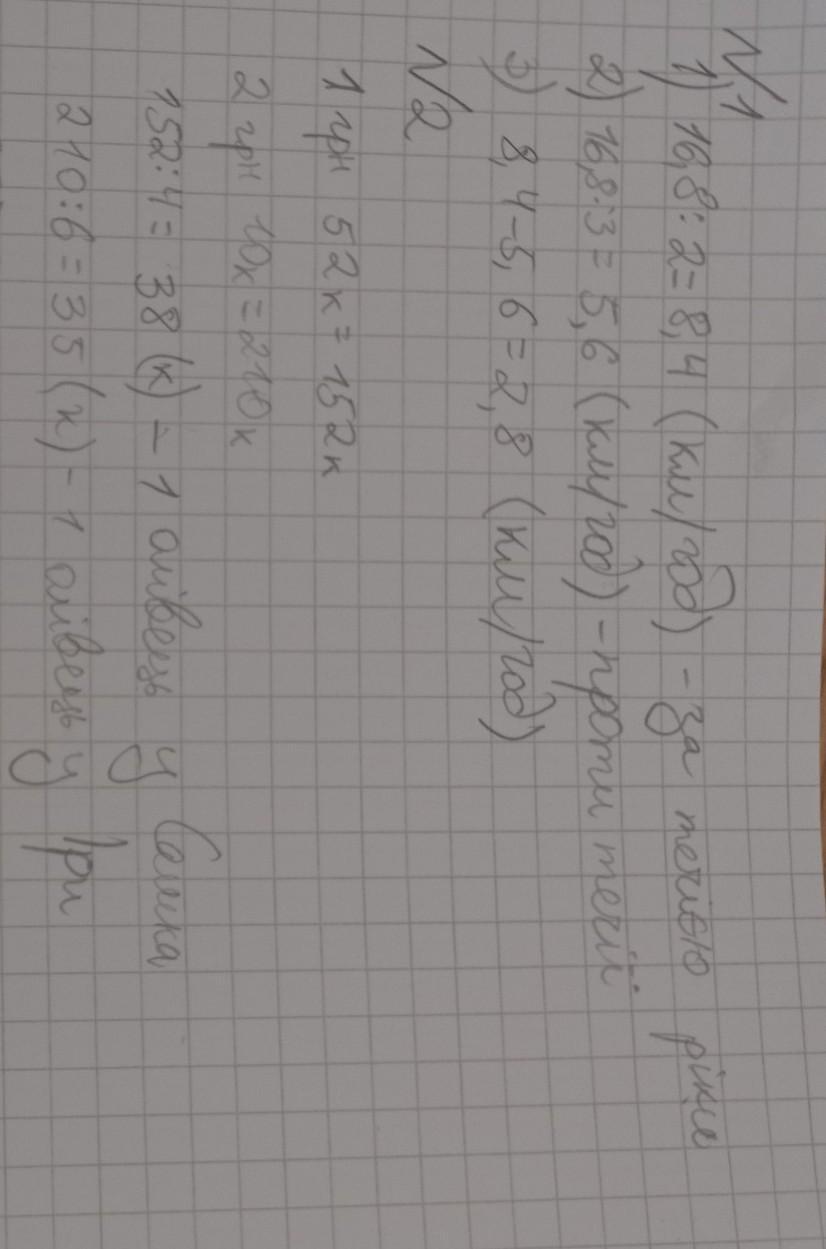 №1
1) 16,8:2=8,4 (км/год) - за течією ріки
2) 16,8:3=5,6 (км/год) - проти течії
3) 8,4-5,6=2,8 (км/год)
№2
1 грн 52к=152к
2 грн 10к=210к
152:4=38(к) - 1 олівець у Сашка
210:6=35(к) - 1 олівець у Іри